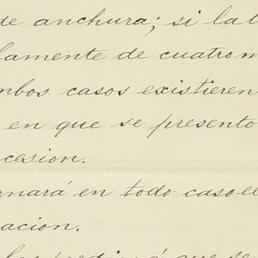 de anchura; si la t
lamente de cuatro m
mbos casos existieren
en que se presento
cesion.
rnará en todo caso el
acion.